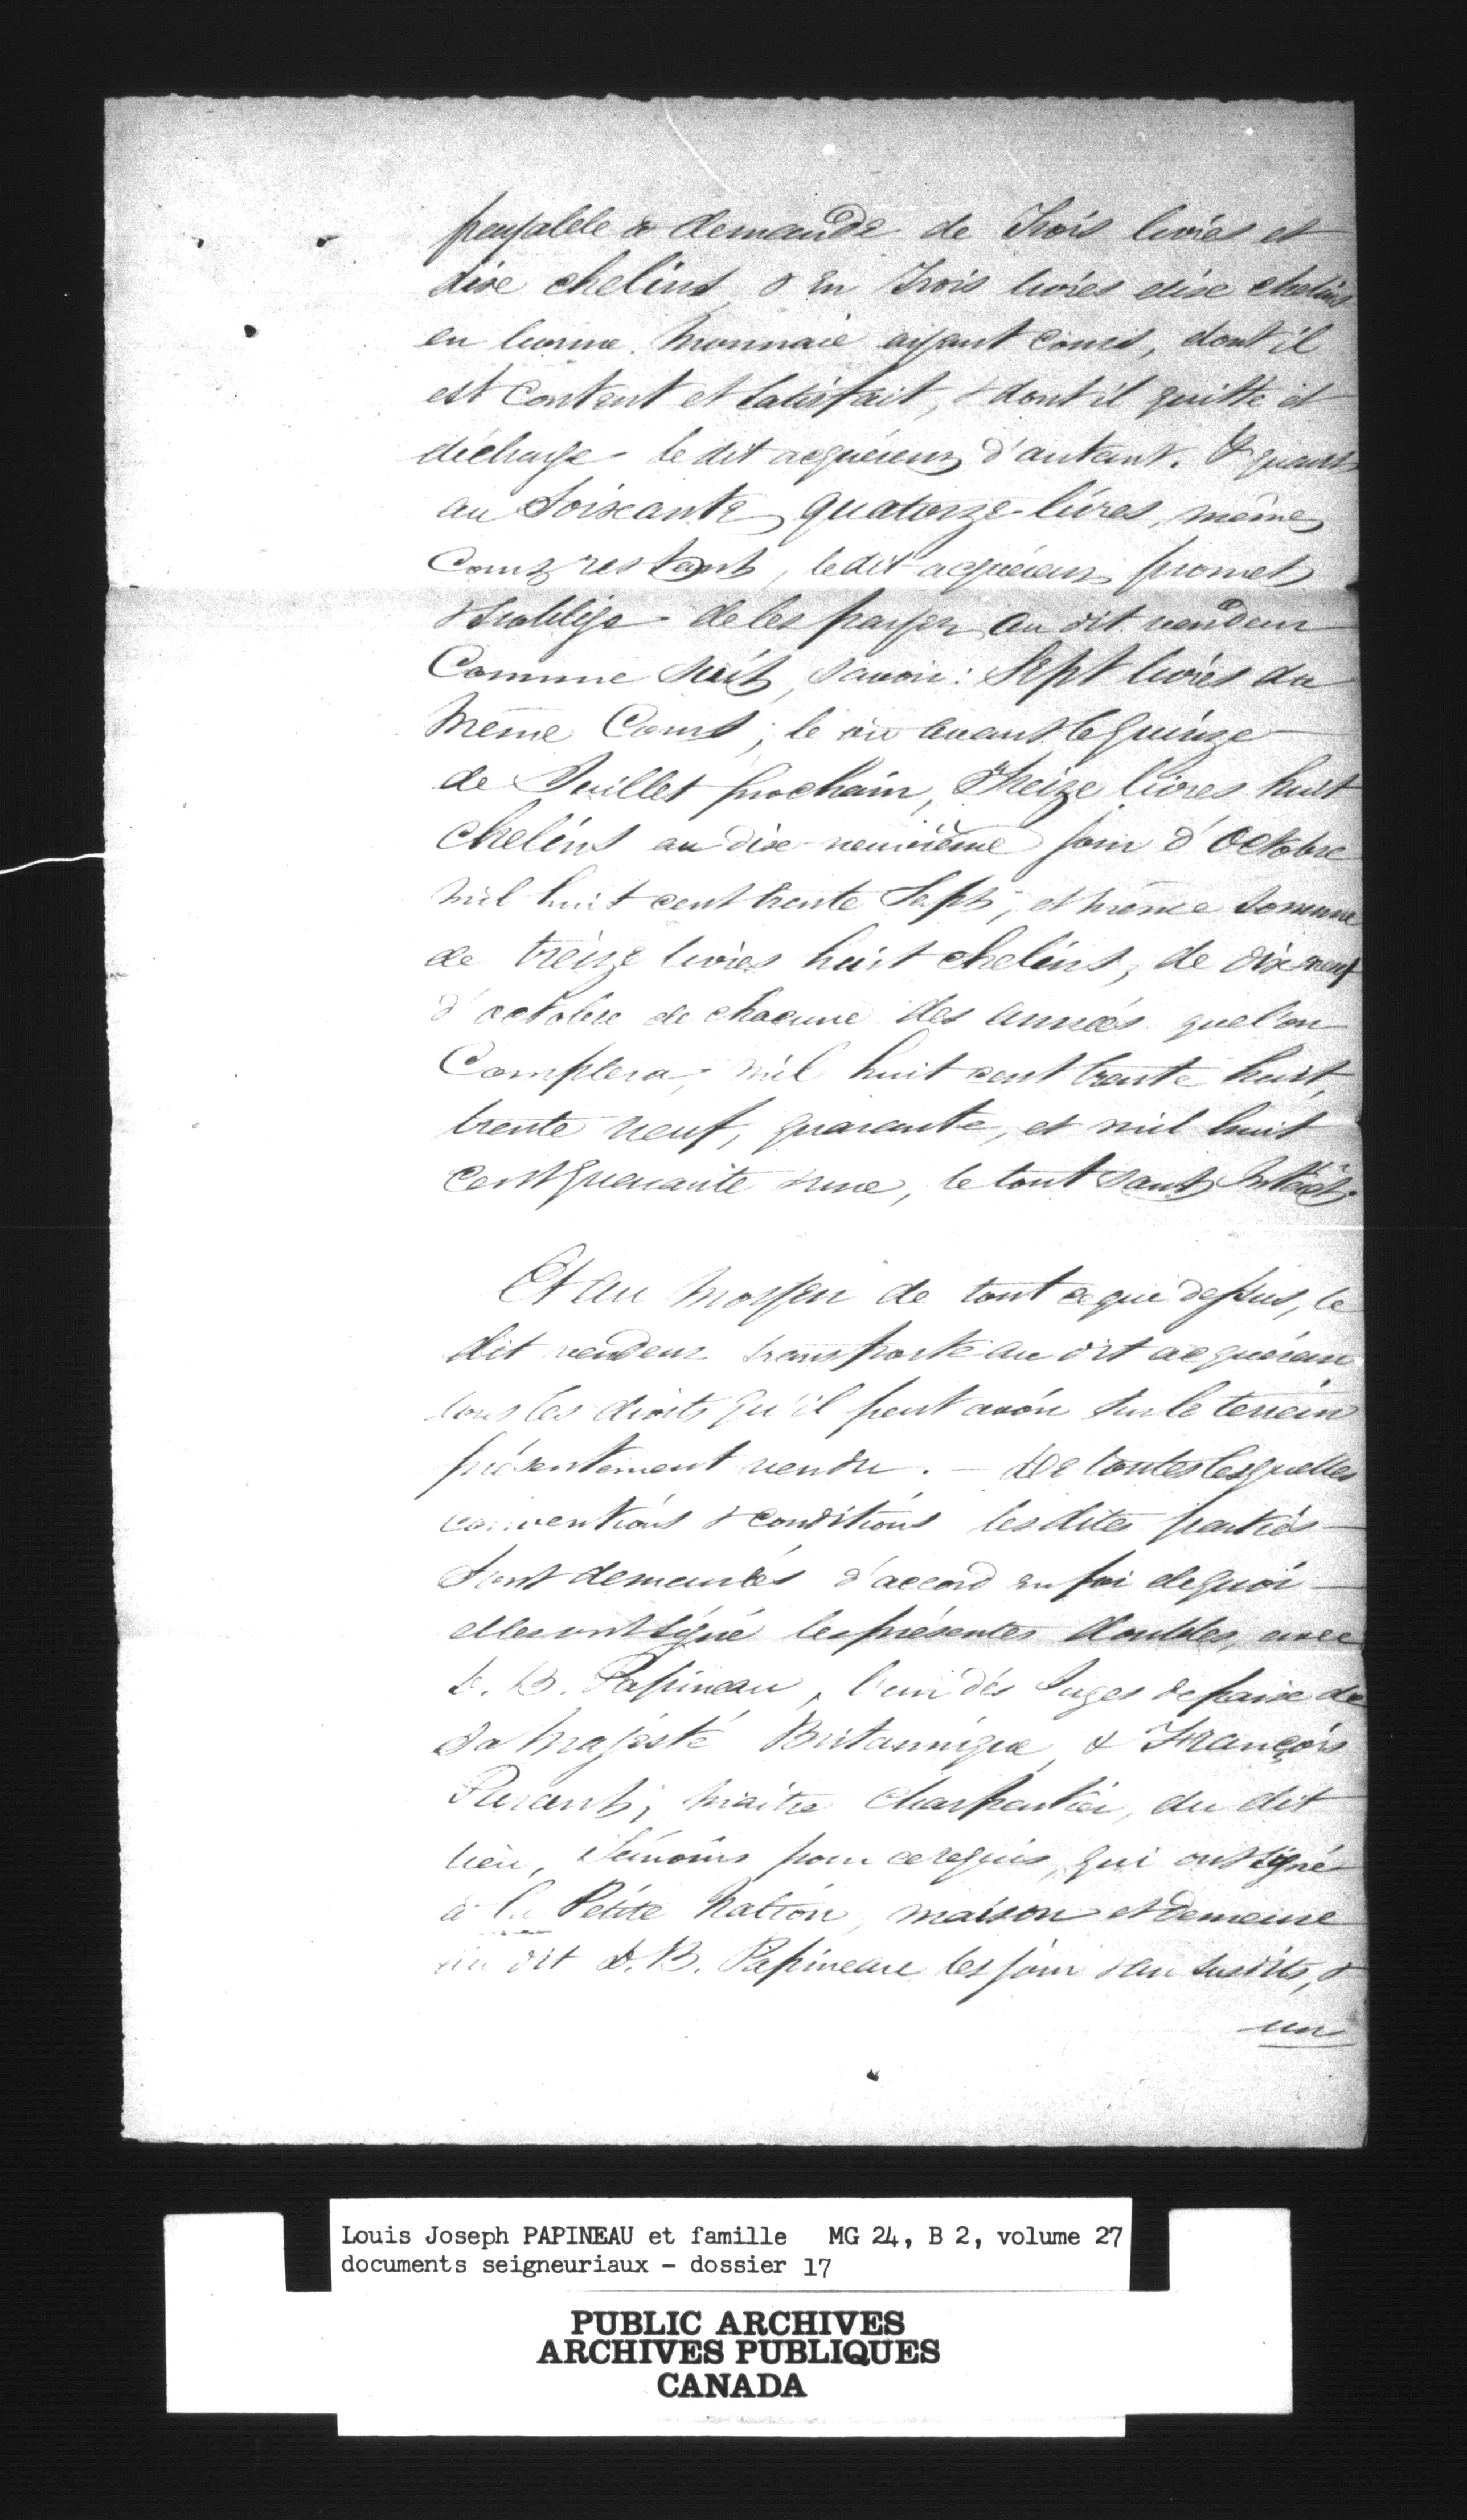 payable à demande de Trois livres et
dixe chelins, & en Trois livres dixe chelins
en bonne monnaie ayant cours, dont il
est content et satisfait, & dont il quitte et
décharge le dit acquéreur d'autant. & quant
au Soixante quatorze livres, même
cours restant, le dit acquéreur promet
& s'oblige de les payer au dit vendeur
Comme suit, savoir : Sept livres du
même Cours, le ou avant le quinze
de Juillet prochain, Treize livres huit
chelins au dixe-neuvième jour d'Octobre
mil huit cent trente Sept; et même somme
de treize livres huit chelins, de dix neuf
d'octobre de chacune des années que l'on
Comptera, mil huit cent trente huit,
trente neuf, quarante, et mil huit
cent quarante & une, le tout sans Intérêt.
Et au moyen de tout ce que dessus, le
dit vendeur transporte au dit acquéreur
tous les droits qu'il peut avoir sur le terrein
présentement vendu. — De toutes lesquelles
conventions & conditions les dites parties
sont demeurées d'accord en foi de quoi
elles ont signé les présentes doubles, avec
D. B. Papineau, l'un des Juges de paix de
Sa Majesté Britannique, & François
Parent, maître Charpentier, du dit
lieu, Témoins pour ce requis, qui ont signé
à la Petite Nation, maison et demeure
du dit D. B. Papineau les jour & an susdits, &
un
Louis Joseph PAPINEAU et famille MG 24, B 2, volume 27
documents seigneuriaux - dossier 17
PUBLIC ARCHIVES
ARCHIVES PUBLIQUES
CANADA